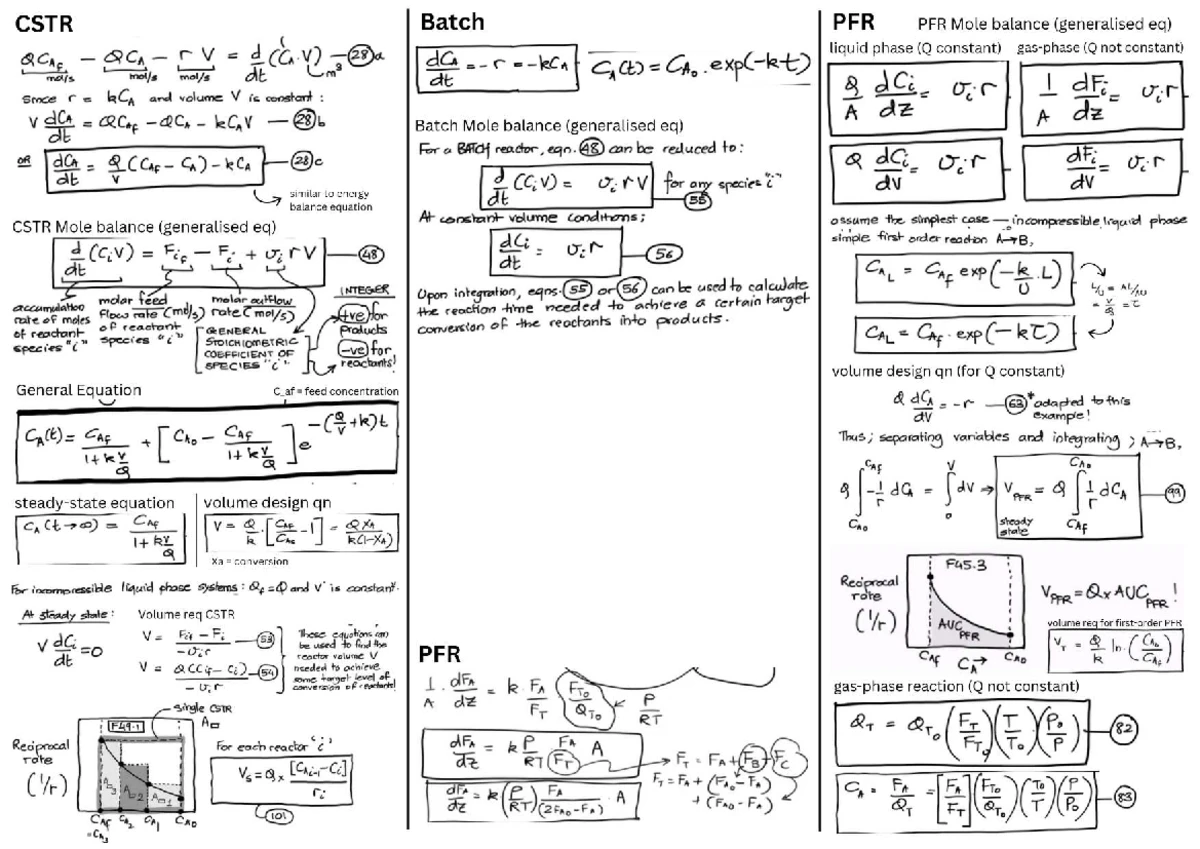 CSTR
QC_Af − QC_A − r V = d/dt (C_A·V) —(28)a
mol/s mol/s mol/s m³
Since r = kC_A and volume V is constant :
V dC_A/dt = QC_Af − QC_A − kC_AV —(28)b
OR dC_A/dt = Q/V (C_Af − C_A) − kC_A —(28)c
similar to energy
balance equation
CSTR Mole balance (generalised eq)
d/dt (C_iV) = F_if − F_i + υ_i r V —(48)
accumulation
rate of moles
of reactant
species "i"
molar feed
flow rate (mol/s)
of reactant
species "i"
molar outflow
rate (mol/s)
GENERAL
STOICHIOMETRIC
COEFFICIENT OF
SPECIES "i"
INTEGER
+ve for
products
−ve for
reactants!
General Equation
C_af = feed concentration
C_A(t) = C_Af/(1+k V/Q) + [C_A0 − C_Af/(1+k V/Q)] e^−(Q/V + k)t
steady-state equation
C_A(t→∞) = C_Af/(1+ kV/Q)
volume design qn
V = Q/k · [C_Af/C_As − 1] = Q X_A/k(1−X_A)
Xa = conversion
For incompressible liquid phase systems : Q_f = Q and V is constant.
At steady state :
V dC_i/dt = 0
Volume req CSTR
V = (F_if − F_i)/−υ_i r —(53)
V = Q(C_if − C_i)/−υ_i r —(54)
These equations can
be used to find the
reactor volume V
needed to achieve
some target level of
conversion of reactants!
Single CSTR
A□
F49.1
Reciprocal
rate
(1/r)
A□3 A□2 A□1
C_Af C_A2 C_A1 C_A0
=C_A3
For each reactor "i"
V_s = Q × [C_Ai−1 − C_i]/r_i
(101)
Batch
dC_A/dt = −r = −kC_A
C_A(t) = C_A0 · exp(−kt)
Batch Mole balance (generalised eq)
For a BATCH reactor, eqn. (48) can be reduced to :
d/dt (C_iV) = υ_i r V for any species "i"
(55)
At constant volume conditions;
dC_i/dt = υ_i r —(56)
Upon integration, eqns. (55) or (56) can be used to calculate
the reaction time needed to achieve a certain target
conversion of the reactants into products.
PFR
1/A · dF_A/dz = k · F_A/F_T (F_T0/Q_T0) P/RT
dF_A/dz = k P/RT F_A/(F_T) A
F_T = F_A + F_B + F_C
F_T = F_A + (F_A0 − F_A)
+ (F_A0 − F_A)
dF_A/dz = k (P/RT) F_A/(2F_A0 − F_A) · A
PFR
PFR Mole balance (generalised eq)
liquid phase (Q constant)
gas-phase (Q not constant)
Q/A dC_i/dz = υ_i·r
1/A dF_i/dz = υ_i·r
Q dC_i/dV = υ_i·r
dF_i/dV = υ_i·r
assume the simplest case — incompressible liquid phase
simple first order reaction A→B,
C_AL = C_Af exp(−k/U · L)
L/U = AL/AU
= V/Q = τ
C_AL = C_Af · exp(−kτ)
volume design qn (for Q constant)
Q dC_A/dV = −r —(63)* adapted to this
example!
Thus; separating variables and integrating ; A→B,
Q ∫_CA0^CAf −1/r dC_A = ∫_0^V dV → V_PFR = Q ∫_CAf^CA0 1/r dC_A —(99)
steady
state
F45.3
Reciprocal
rate
(1/r)
AUC_PFR
C_Af C_A→ C_A0
V_PFR = Q × AUC_PFR !
volume req for first-order PFR
V_T = Q/k ln·(C_A0/C_Af)
gas-phase reaction (Q not constant)
Q_T = Q_T0 (F_T/F_T0)(T/T_0)(P_0/P) —(82)
C_A = F_A/Q_T = [F_A/F_T](F_T0/Q_T0)(T_0/T)(P/P_0) —(83)